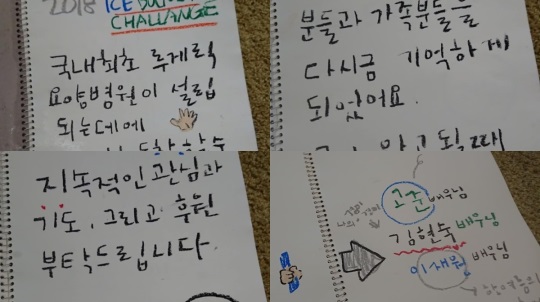 2018 ICE BUCKET
CHALLENGE
국내최초 루게릭
요양병원이 설립
되는데에
분들과 가족분들을
다시금 기억하게
되었어요.
지속적인 관심과
기도, 그리고 후원
부탁드립니다.
고준 배우님
김현숙 배우님
이채원 배우님